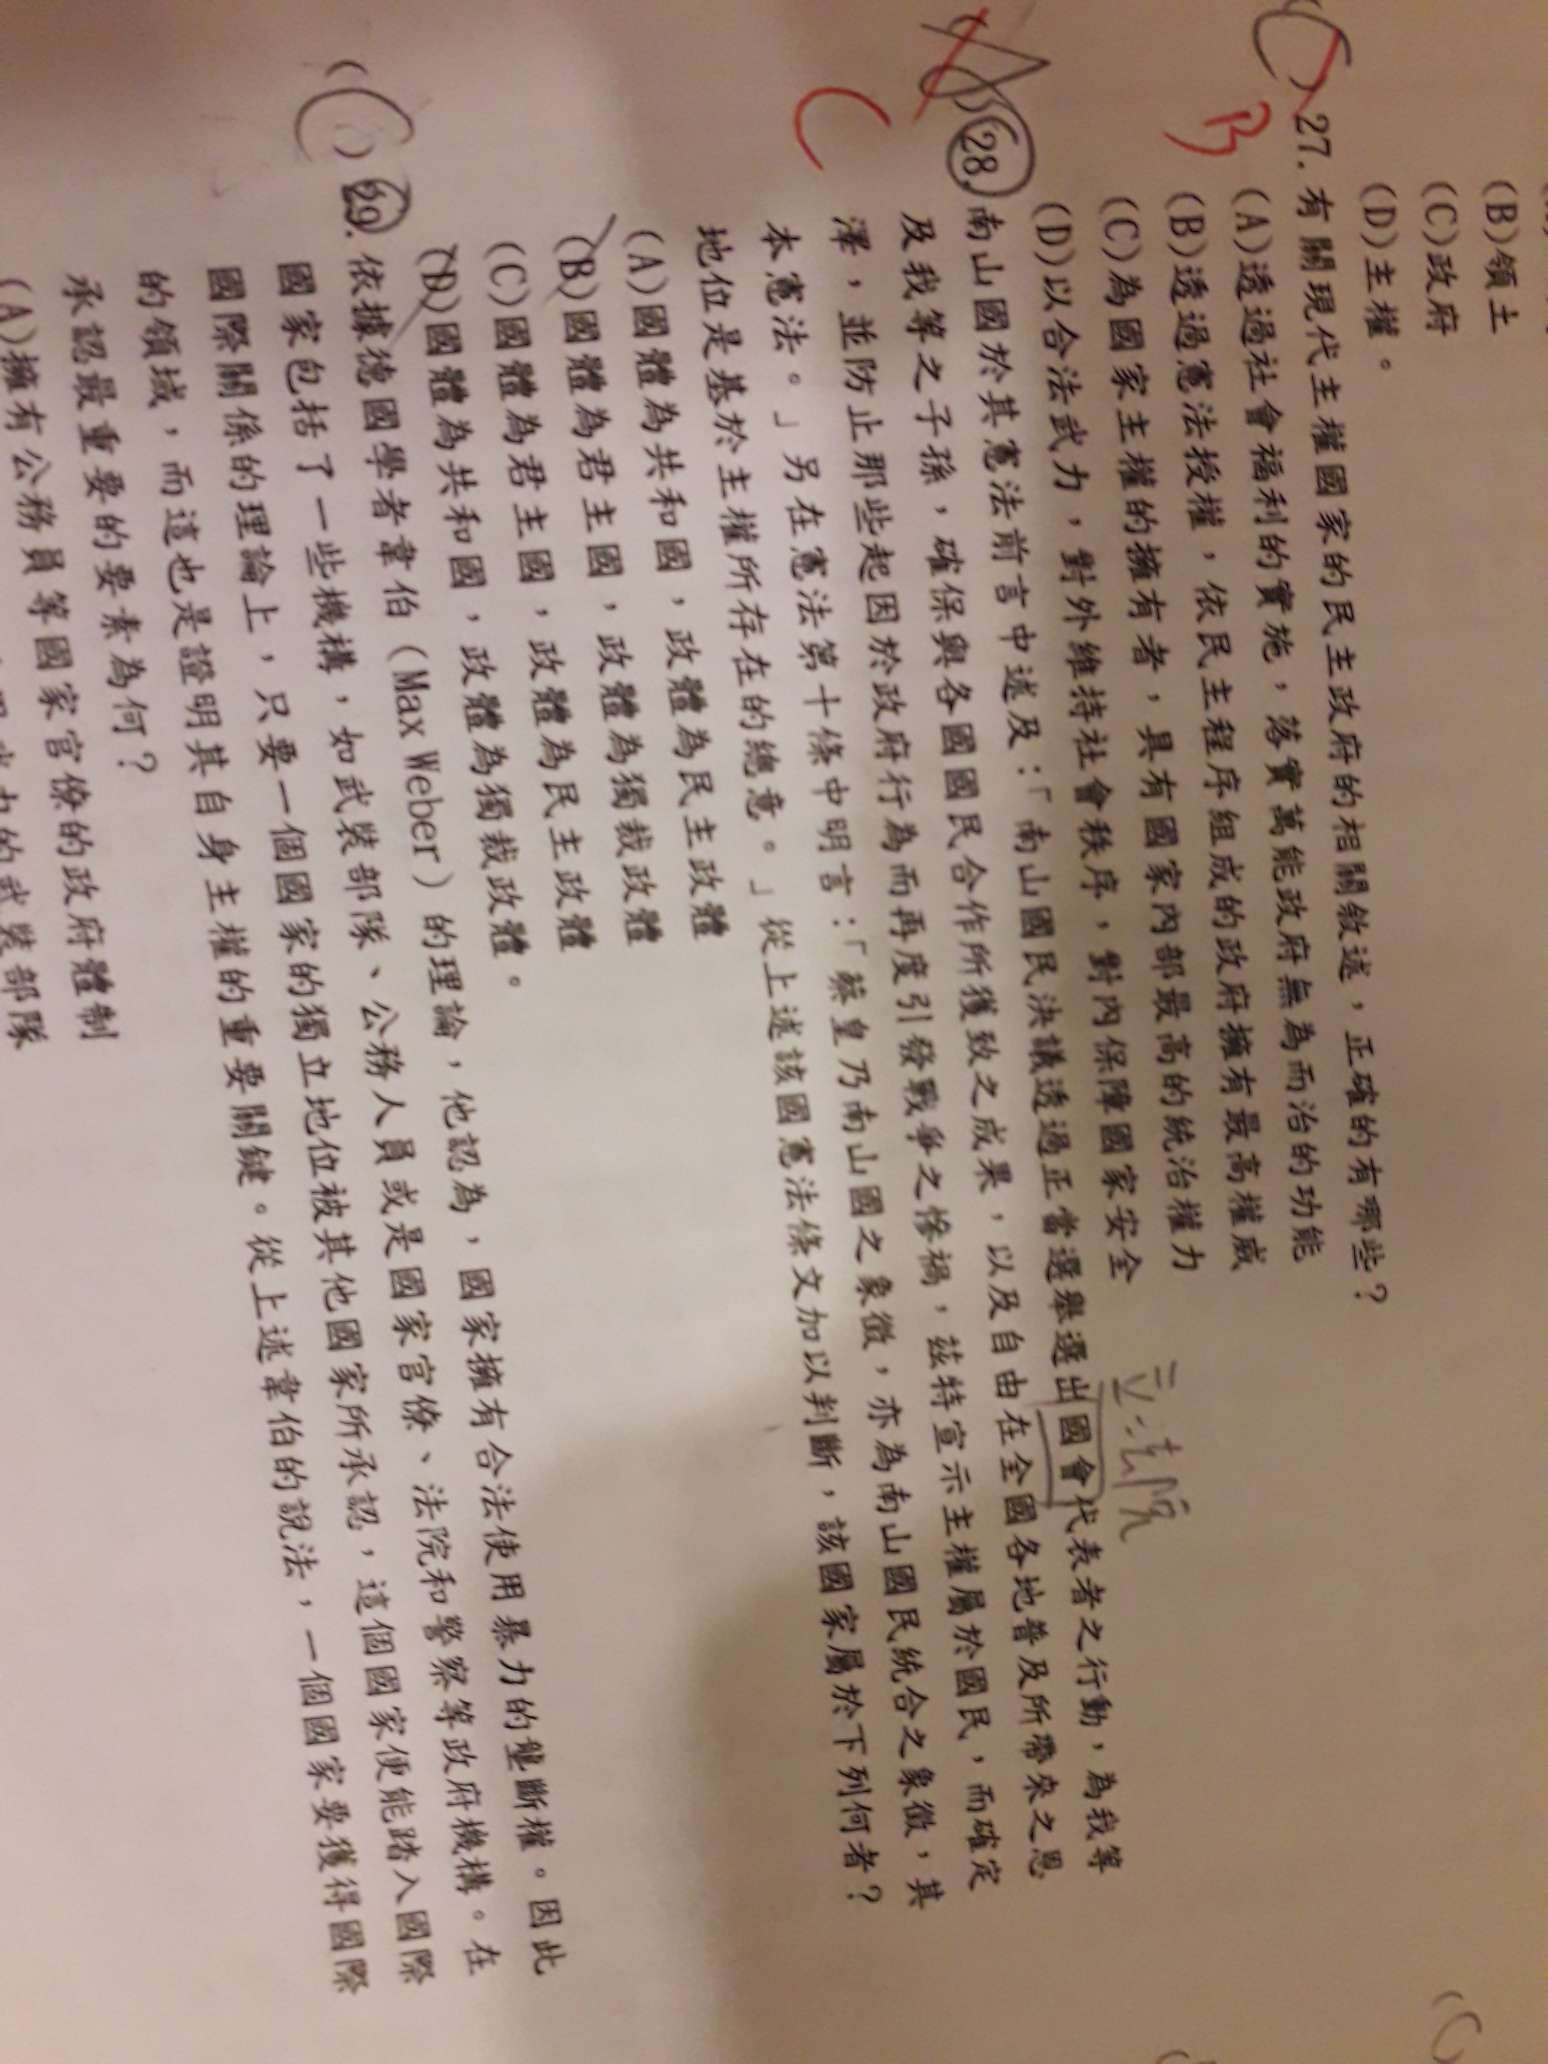 (B)領土
(C)政府
(D)主權。
(C) 27. 有關現代主權國家的民主政府的相關敘述，正確的有哪些？
B
(A)透過社會福利的實施，落實萬能政府無為而治的功能
(B)透過憲法授權，依民主程序組成的政府擁有最高權威
(C)為國家主權的擁有者，具有國家內部最高的統治權力
(D)以合法武力，對外維持社會秩序，對內保障國家安全
立法院
28. 南山國於其憲法前言中述及：「南山國民決議透過正當選舉選出國會代表者之行動，為我等
及我等之子孫，確保與各國國民合作所獲致之成果，以及自由在全國各地普及所帶來之恩
澤，並防止那些起因於政府行為而再度引發戰爭之慘禍，茲特宣示主權屬於國民，而確定
本憲法。」另在憲法第十條中明言：「蔡皇乃南山國之象徵，亦為南山國民統合之象徵，其
地位是基於主權所存在的總意。」從上述該國憲法條文加以判斷，該國家屬於下列何者？
C
(A)國體為共和國，政體為民主政體
(B)國體為君主國，政體為獨裁政體
(C)國體為君主國，政體為民主政體
(D)國體為共和國，政體為獨裁政體。
(C) 29. 依據德國學者韋伯（Max Weber）的理論，他認為，國家擁有合法使用暴力的壟斷權。因此
國家包括了一些機構，如武裝部隊、公務人員或是國家官僚、法院和警察等政府機構。在
國際關係的理論上，只要一個國家的獨立地位被其他國家所承認，這個國家便能踏入國際
的領域，而這也是證明其自身主權的重要關鍵。從上述韋伯的說法，一個國家要獲得國際
承認最重要的要素為何？
(A)擁有公務員等國家官僚的政府體制
力的武裝部隊